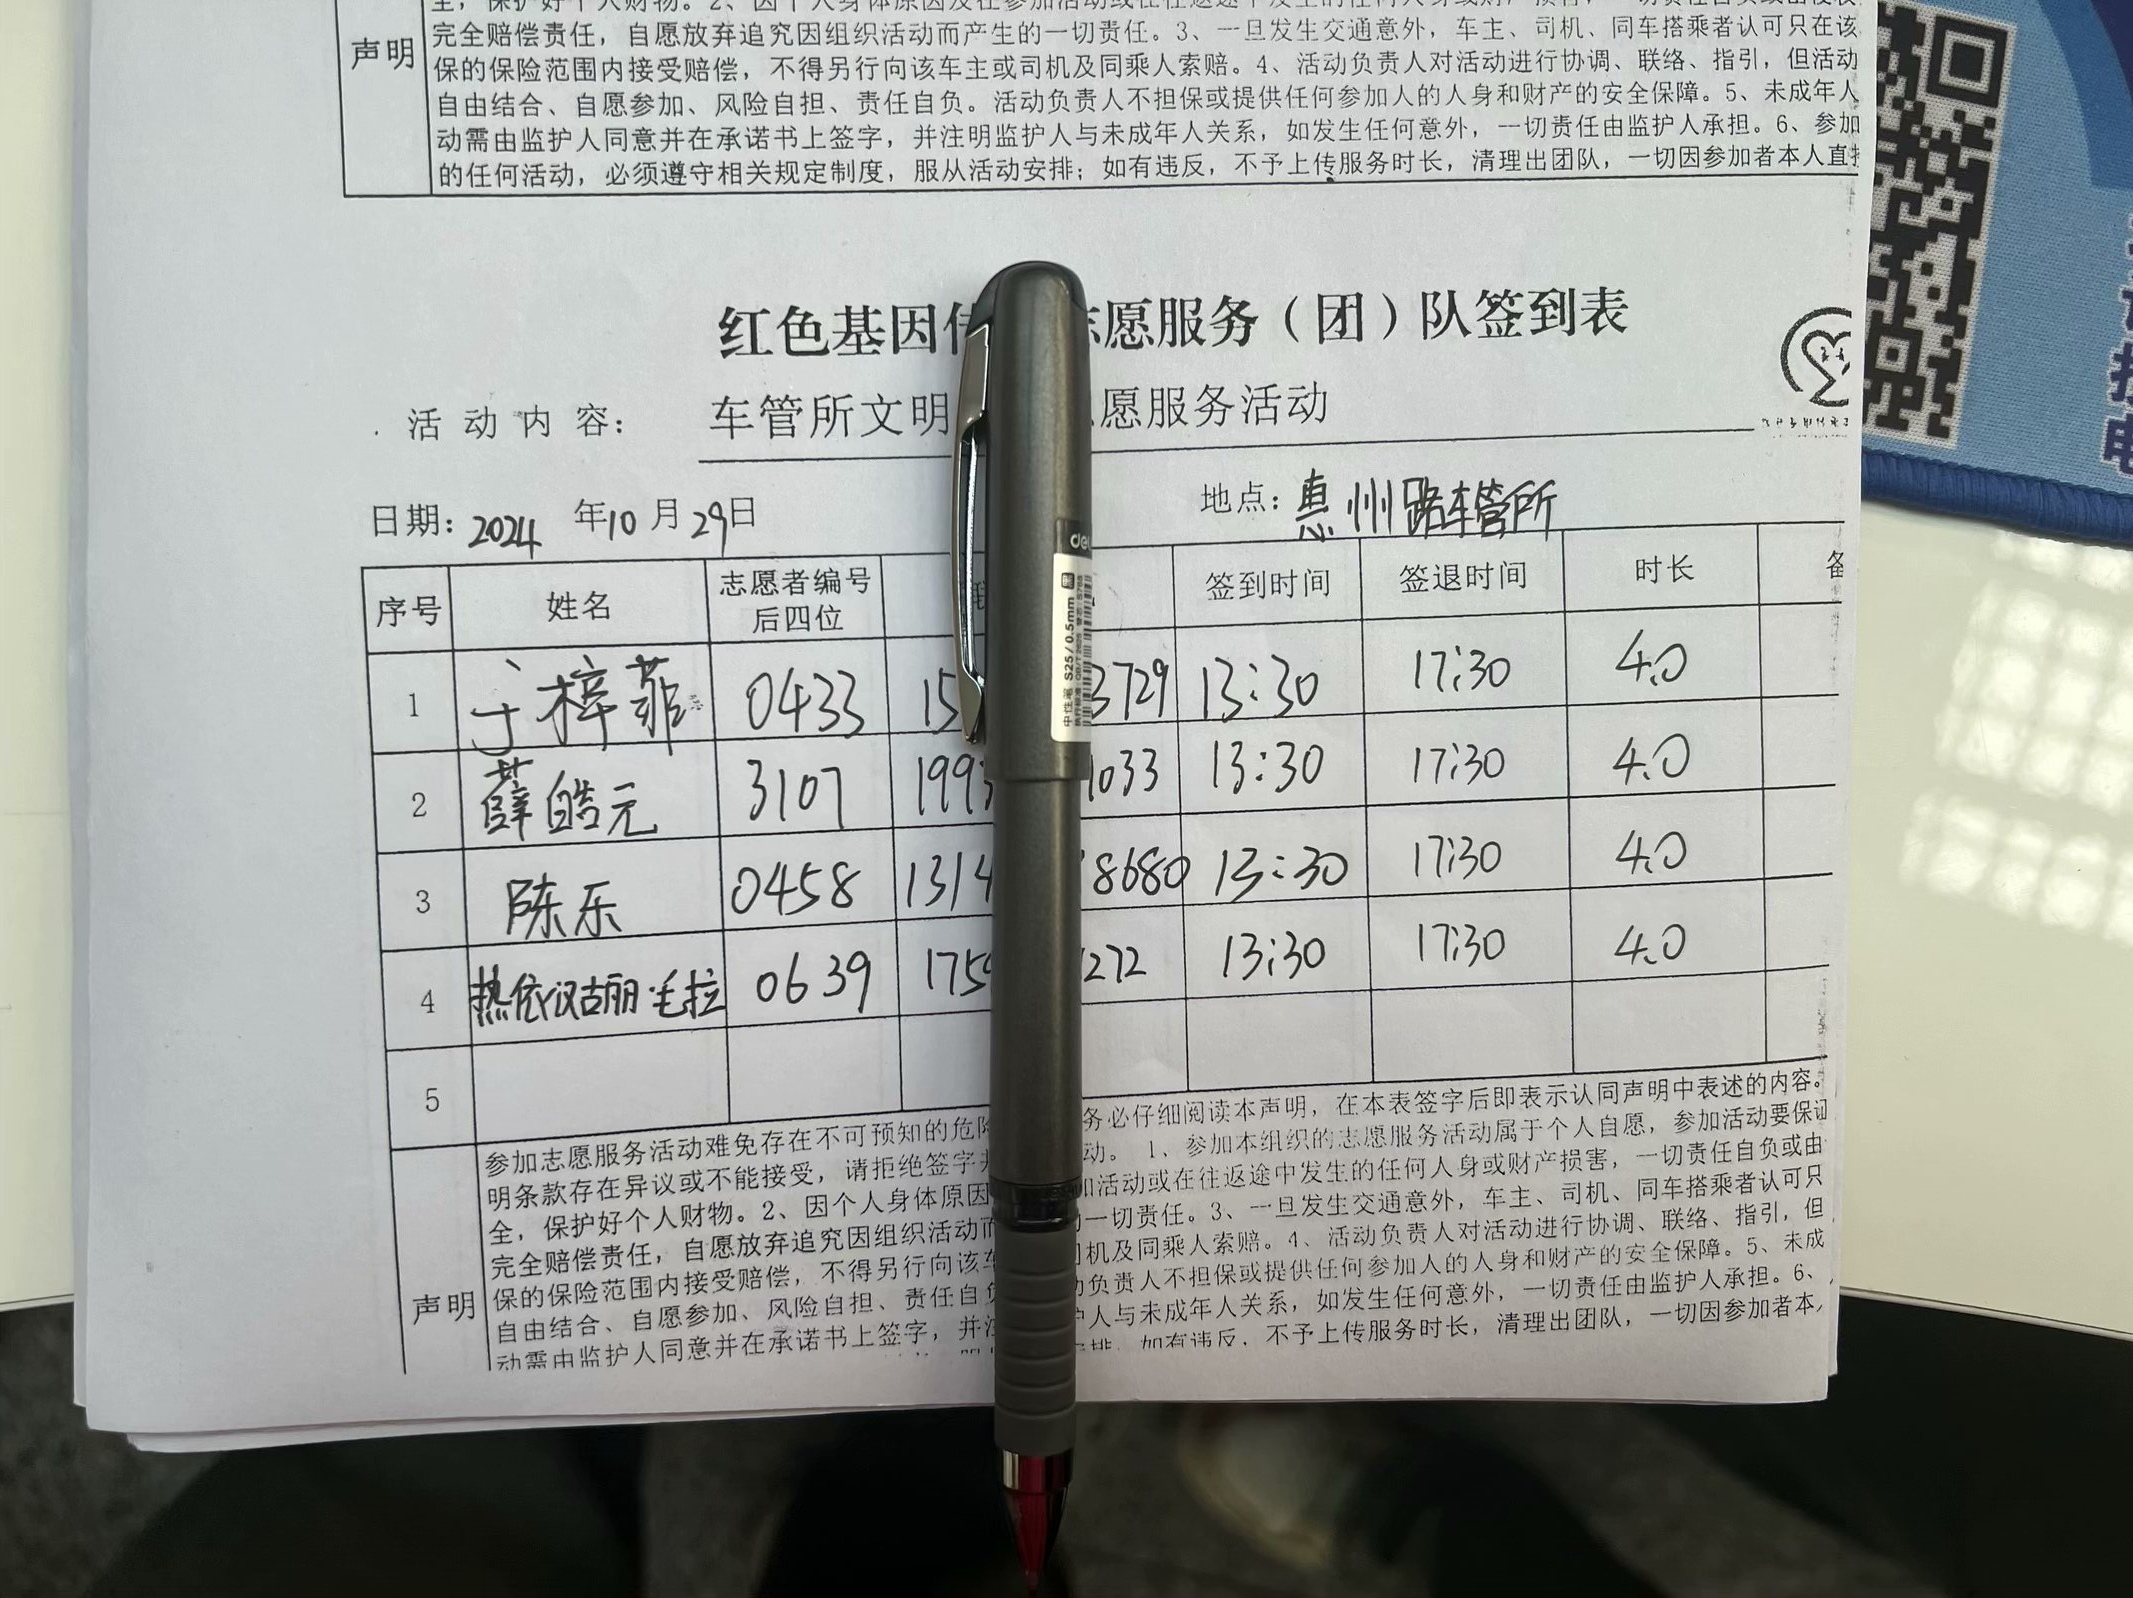 声明
完全赔偿责任，自愿放弃追究因组织活动而产生的一切责任。3、一旦发生交通意外，车主、司机、同车搭乘者认可只在该
保的保险范围内接受赔偿，不得另行向该车主或司机及同乘人索赔。4、活动负责人对活动进行协调、联络、指引，但活动
自由结合、自愿参加、风险自担、责任自负。活动负责人不担保或提供任何参加人的人身和财产的安全保障。5、未成年人
动需由监护人同意并在承诺书上签字，并注明监护人与未成年人关系，如发生任何意外，一切责任由监护人承担。6、参加
的任何活动，必须遵守相关规定制度，服从活动安排；如有违反，不予上传服务时长，清理出团队，一切因参加者本人直
红色基因 愿服务（团）队签到表
活动内容： 车管所文明 愿服务活动
日期：2024 年10月29日 地点：惠州路车管所
序号 姓名 志愿者编号后四位 签到时间 签退时间 时长
1 于梓菲 0433 15 3729 13:30 17:30 4.0
2 薛皓元 3107 199 1033 13:30 17:30 4.0
3 陈乐 0458 1314 8680 13:30 17:30 4.0
4 热依汉古丽·毛拉 0639 175 272 13:30 17:30 4.0
5
参加志愿服务活动难免存在不可预知的危 务必仔细阅读本声明，在本表签字后即表示认同声明中表述的内容。
明条款存在异议或不能接受，请拒绝签字 动。 1、参加本组织的志愿服务活动属于个人自愿，参加活动要保证
全，保护好个人财物。2、因个人身体原因 加活动或在往返途中发生的任何人身或财产损害，一切责任自负或由
完全赔偿责任，自愿放弃追究因组织活动而 一切责任。3、一旦发生交通意外，车主、司机、同车搭乘者认可只
保的保险范围内接受赔偿，不得另行向该车 司机及同乘人索赔。4、活动负责人对活动进行协调、联络、指引，但
自由结合、自愿参加、风险自担、责任自 动负责人不担保或提供任何参加人的人身和财产的安全保障。5、未成
动需由监护人同意并在承诺书上签字，并 人与未成年人关系，如发生任何意外，一切责任由监护人承担。6、
如有违反，不予上传服务时长，清理出团队，一切因参加者本
声明
中性笔 S25/0.5mm